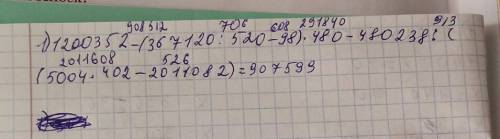 908512 706 608 291840 913
1) 1200352-(367120:520-98)·480-480238:(
2011608 526
(5004·402-2011082)=907599